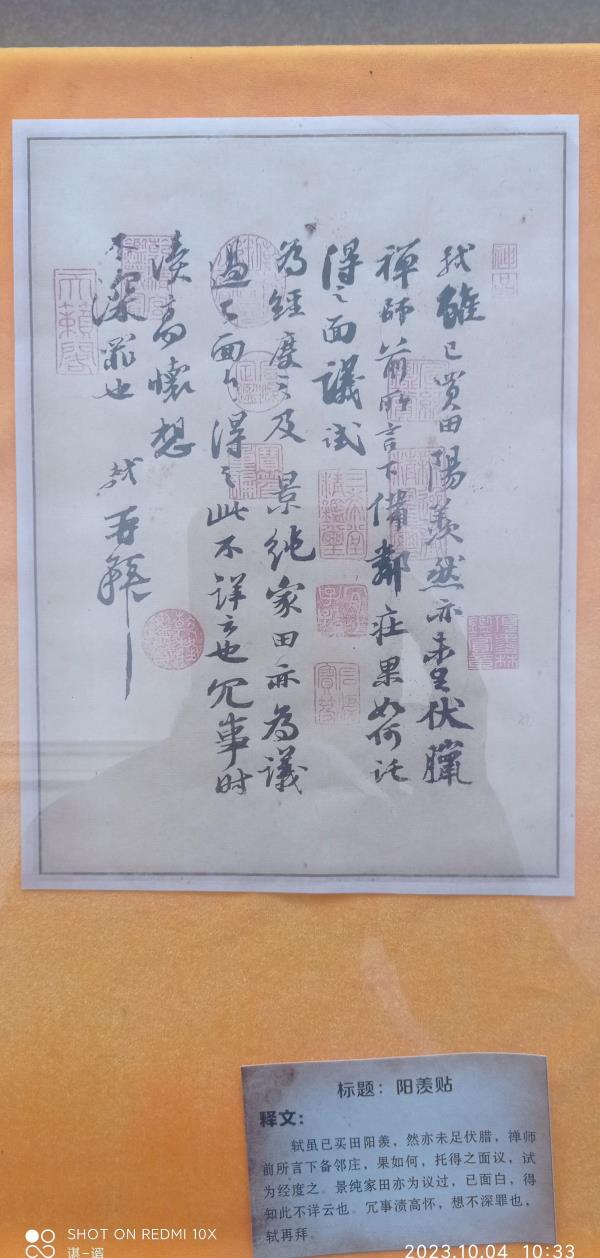 軾雖已買田陽羨然亦未足伏臘
禪師前所言下備鄰莊果如何託
得之面議試
為經度之及 景純家田亦為議
過已面白得之此不詳云也冗事时
瀆高懷想
不深罪也 軾再拜
三希堂精鑑璽
宜子孫
天籟閣
标题：阳羡贴
释文：
轼虽已买田阳羡，然亦未足伏腊，禅师
前所言下备邻庄，果如何，托得之面议，试
为经度之。景纯家田亦为议过，已面白，得
知此不详云也。冗事渎高怀，想不深罪也，
轼再拜。
SHOT ON REDMI 10X
谌-谞
2023.10.04 10:33